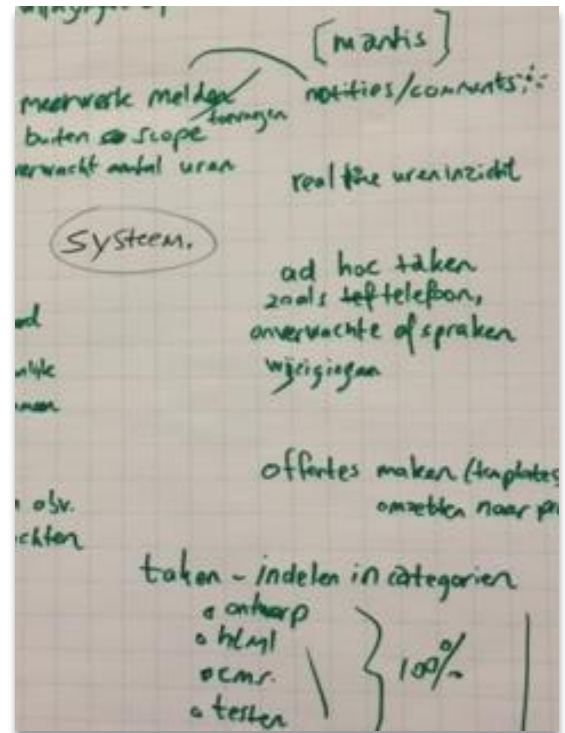 [mantis]
meerwerk melden
toevoegen
notities/comments
buiten scope
verwacht aantal uren
real time ureninzicht
systeem.
ad hoc taken
zoals telefoon,
onverwachte afspraken
wijzigingen
offertes maken (templates
omzetten naar pr
obv.
chten
taken - indelen in categorien
ontwerp
html
cms.
testen
100%